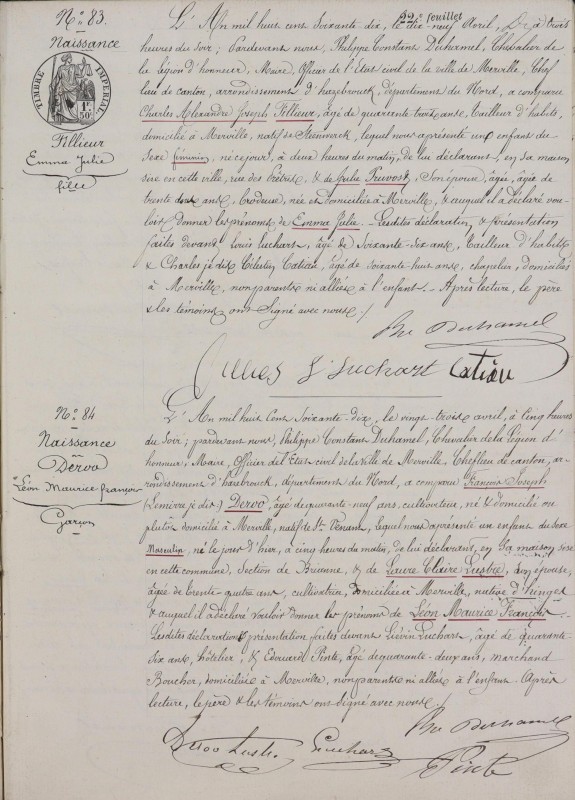 22e feuillet
No. 83.
Naissance
TIMBRE IMPÉRIAL
1F 50c
Fillieux
Emma Julie
fille
L'An mil huit cent Soixante-dix, le dix-neuf Avril, à trois
heures du Soir; Pardevant nous, Philippe Constant Duhamel, Chevalier de
la Légion d'honneur, Maire, Officier de l'Etat civil de la ville de Merville, Chef
lieu de canton, arrondissement d'hazebrouck, département du Nord, a comparu
Charles Alexandre Joseph Fillieux, âgé de quarante-trois ans, tailleur d'habits,
domicilié à Merville, natif de Steenwerck, lequel nous a présenté un enfant du
Sexe féminin, né ce jour, à deux heures du matin, de lui déclarant, en sa maison
sise en cette ville, rue des Prêtres, & de Julie Pruvost, Son épouse, âgée de
trente ans, brodeuse, née et domiciliée à Merville, & auquel il a déclaré vou-
loir donner les prénoms de Emma Julie. - Lesdites déclaration & présentation
faites devant Louis Luchart, âgé de Soixante-Six ans, tailleur d'habits
& Charles je dis Célestin Catiau, âgé de soixante-huit ans, chapelier, domiciliés
à Merville, non parents ni alliés à l'enfant. - Après lecture, le père
& les témoins ont Signé avec nous ./
Phe Duhamel
L'Luchart Catiau
No. 84
Naissance
Dervo
Léon Maurice françois
Garçon
L'An mil huit Cent Soixante-dix, le vingt-trois avril, à Cinq heures
du Soir; pardevant nous, Philippe Constant Duhamel, Chevalier de la Légion d'
honneur, Maire, Officier de l'Etat civil de la Ville de Merville, Chef lieu de canton, ar-
rondissement d'hazebrouck, département du Nord, a comparu François Joseph
(Lemière je dis) Dervo, âgé de quarante-neuf ans, cultivateur, né & domicilié ou
plutôt domicilié à Merville, natif de St Venant, lequel nous a présenté un enfant du sexe
Masculin, né le jour d'hier, à cinq heures du matin, de lui déclarant, en sa maison sise
en cette commune, Section de Brienne, & de Laure Claire Lesbre, son épouse,
âgée de trente-quatre ans, cultivatrice, domiciliée à Merville, native d'hinges
& auquel il a déclaré vouloir donner les prénoms de Léon Maurice François.
Lesdites déclaration & présentation faites devant Liévin Luchart, âgé de quarante-
six ans, hôtelier, & Edouard Pinte, âgé de quarante-deux ans, marchand
Boucher, domiciliés à Merville, non parents ni alliés à l'enfant. Après
lecture, le père & les témoins ont signé avec nous ./
Phe Duhamel
Luchart
Pinte